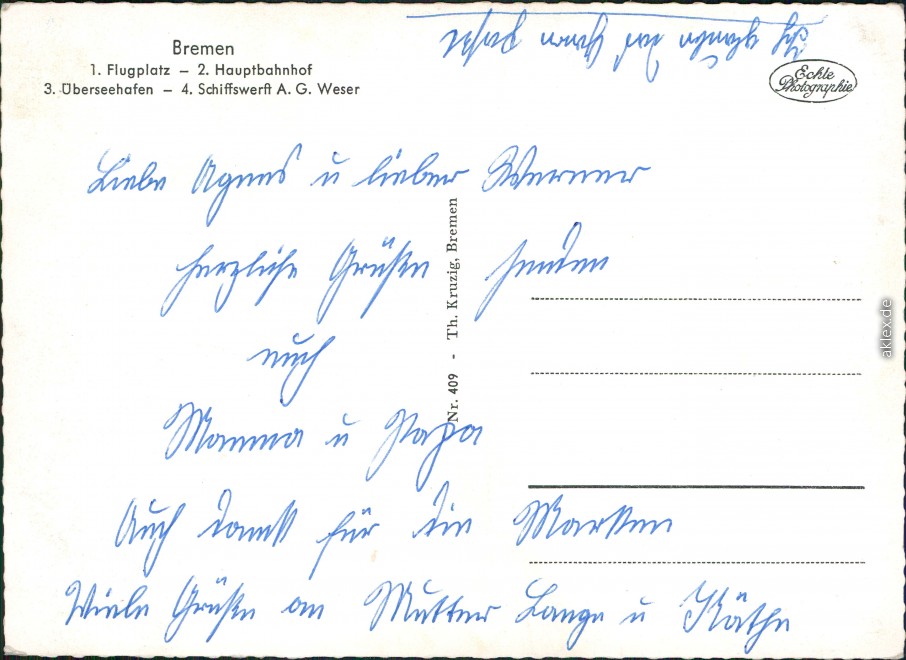 Bremen
1. Flugplatz – 2. Hauptbahnhof
3. Überseehafen – 4. Schiffswerft A. G. Weser
Echte
Photographie
Liebe Agnes u lieber Werner
herzliche Grüße senden
euch
Mamma u Papa
Auch Dank für die Marken
Viele Grüße an Mutter Lange u Käthe
Nr. 409 - Th. Kruzig, Bremen
aklex.de
Ich